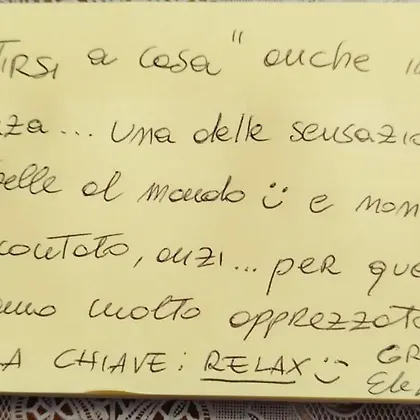 TIRSI a casa" anche i
za... una delle sensazio
belle al mondo :) e non
contato, anzi... per que
amo molto apprezzato
LA CHIAVE: RELAX :) GR
Ele